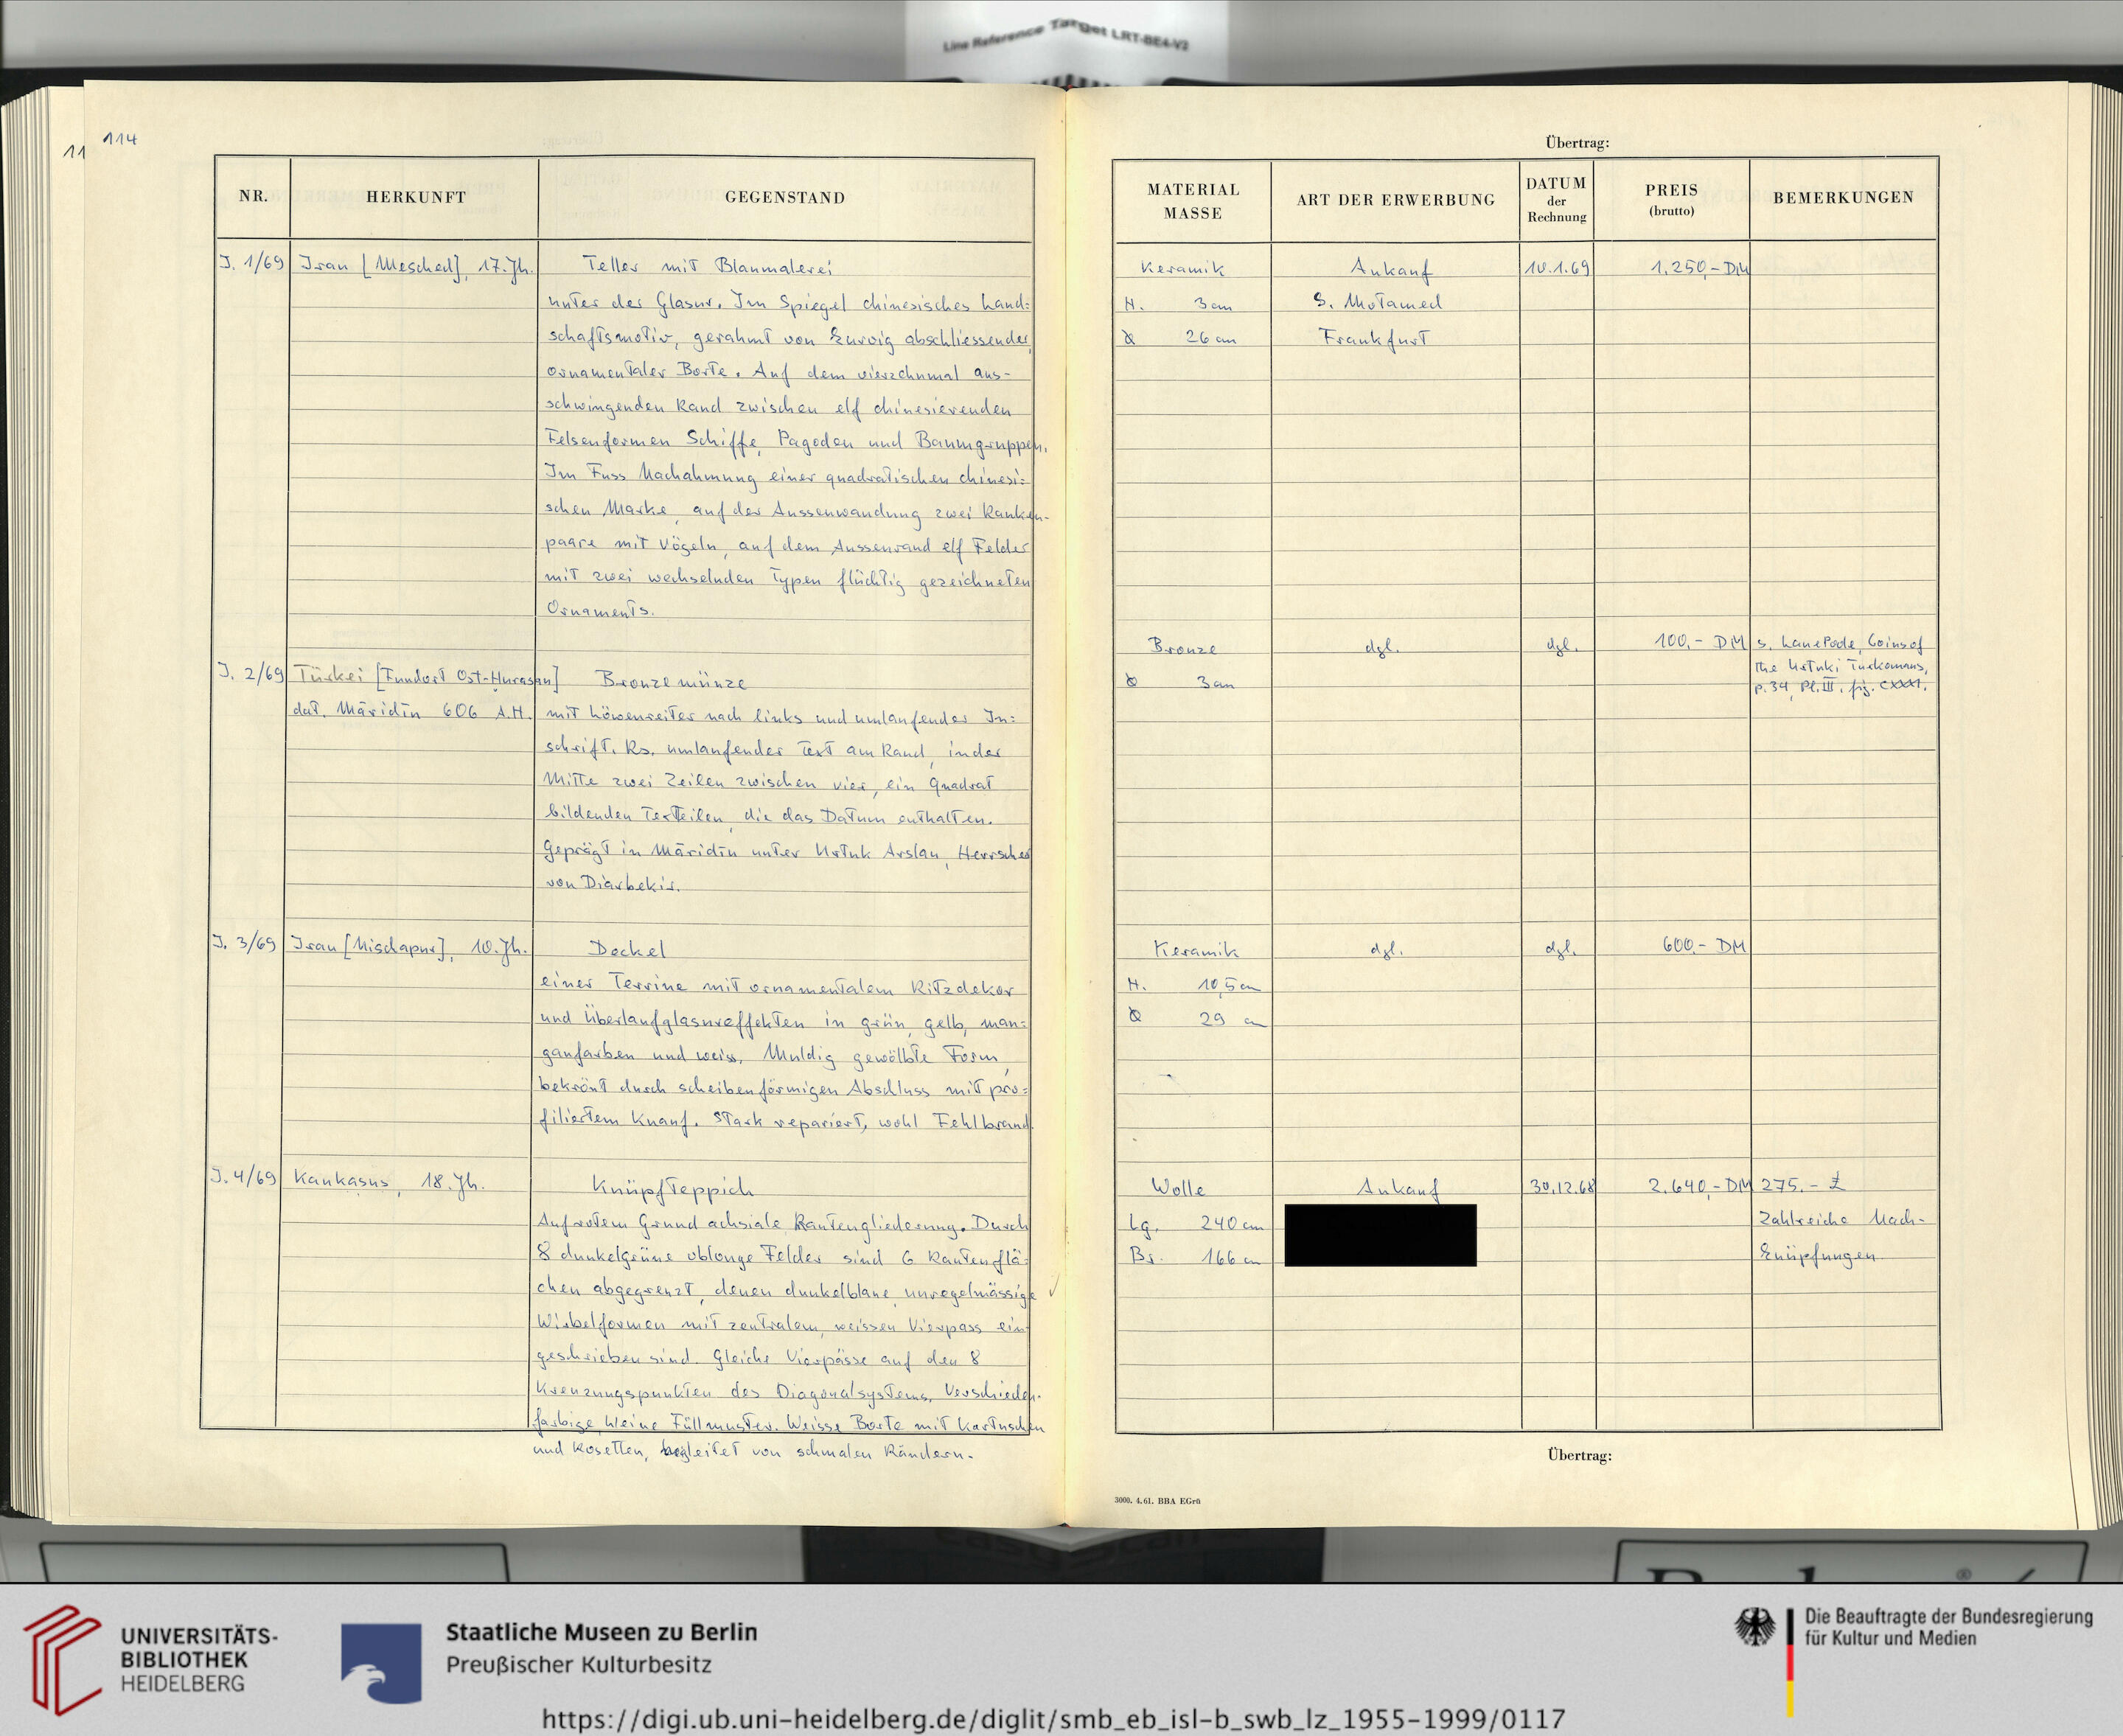 Line Reference Target LRT-BE4-V2
114
11
NR.
HERKUNFT
GEGENSTAND
J. 1/69
Iran [Mesched], 17. Jh.
Teller mit Blaumalerei
unter der Glasur. Im Spiegel chinesisches Land=
schaftsmotiv, gerahmt von kurvig abschliessender
ornamentaler Borte. Auf dem vierzehnmal aus-
schwingenden Rand zwischen elf chinesierenden
Felsenformen Schiffe, Pagoden und Baumgruppen.
Im Fuss Nachahmung einer quadratischen chinesi=
schen Marke, auf der Aussenwandung zwei Ranken-
paare mit Vögeln, auf dem Aussenrand elf Felder
mit zwei wechselnden Typen flüchtig gezeichneten
Ornaments.
J. 2/69
Türkei [Fundort Ost-Hurasan]
dat. Māridīn 606 A.H.
Bronzemünze
mit Löwenreiter nach links und umlaufender In=
schrift. Rs. umlaufender Text am Rand, in der
Mitte zwei Zeilen zwischen vier, ein Quadrat
bildenden Textteilen, die das Datum enthalten.
Geprägt in Māridīn unter Urtuk Arslan, Herrscher
von Diarbekir.
J. 3/69
Iran [Nischapur], 10. Jh.
Deckel
einer Terrine mit ornamentalem Ritzdekor
und Überlaufglasureffekten in grün, gelb, man=
ganfarben und weiss. Muldig gewölbte Form,
bekrönt durch scheibenförmigen Abschluss mit pro=
filiertem Knauf. Stark repariert, wohl Fehlbrand.
J. 4/69
Kaukasus, 18. Jh.
Knüpfteppich
Auf rotem Grund achsiale Rautengliederung. Durch
8 dunkelgrüne oblonge Felder sind 6 Rautenflä=
chen abgegrenzt, denen dunkelblaue, unregelmässige
Wirbelformen mit zentralem, weissen Vierpass ein
geschrieben sind. Gleiche Vierpässe auf den 8
Kreuzungspunkten des Diagonalsystems. Verschieden-
farbige kleine Füllmuster. Weisse Borte mit Kartuschen
und Rosetten, begleitet von schmalen Rändern.
Übertrag:
MATERIAL
MASSE
ART DER ERWERBUNG
DATUM
der
Rechnung
PREIS
(brutto)
BEMERKUNGEN
Keramik
H. 3 cm
Ø 26 cm
Ankauf
S. Motamed
Frankfurt
10.1.69
1.250,- DM
Bronze
Ø 3 cm
dgl.
dgl.
100,- DM
s. Lane Poole, Coins of
the Urtuki Turkomans,
p. 34, Pl. III, fig. CXXXI.
Keramik
H. 10,5 cm
Ø 29 cm
dgl.
dgl.
600,- DM
Wolle
Lg. 240 cm
Br. 166 cm
Ankauf
30.12.68
2.640,- DM
275.- £
Zahlreiche Nach-
knüpfungen
Übertrag:
3000. 4.61. BBA EGrü
UNIVERSITÄTS-
BIBLIOTHEK
HEIDELBERG
Staatliche Museen zu Berlin
Preußischer Kulturbesitz
Die Beauftragte der Bundesregierung
für Kultur und Medien
https://digi.ub.uni-heidelberg.de/diglit/smb_eb_isl-b_swb_lz_1955-1999/0117